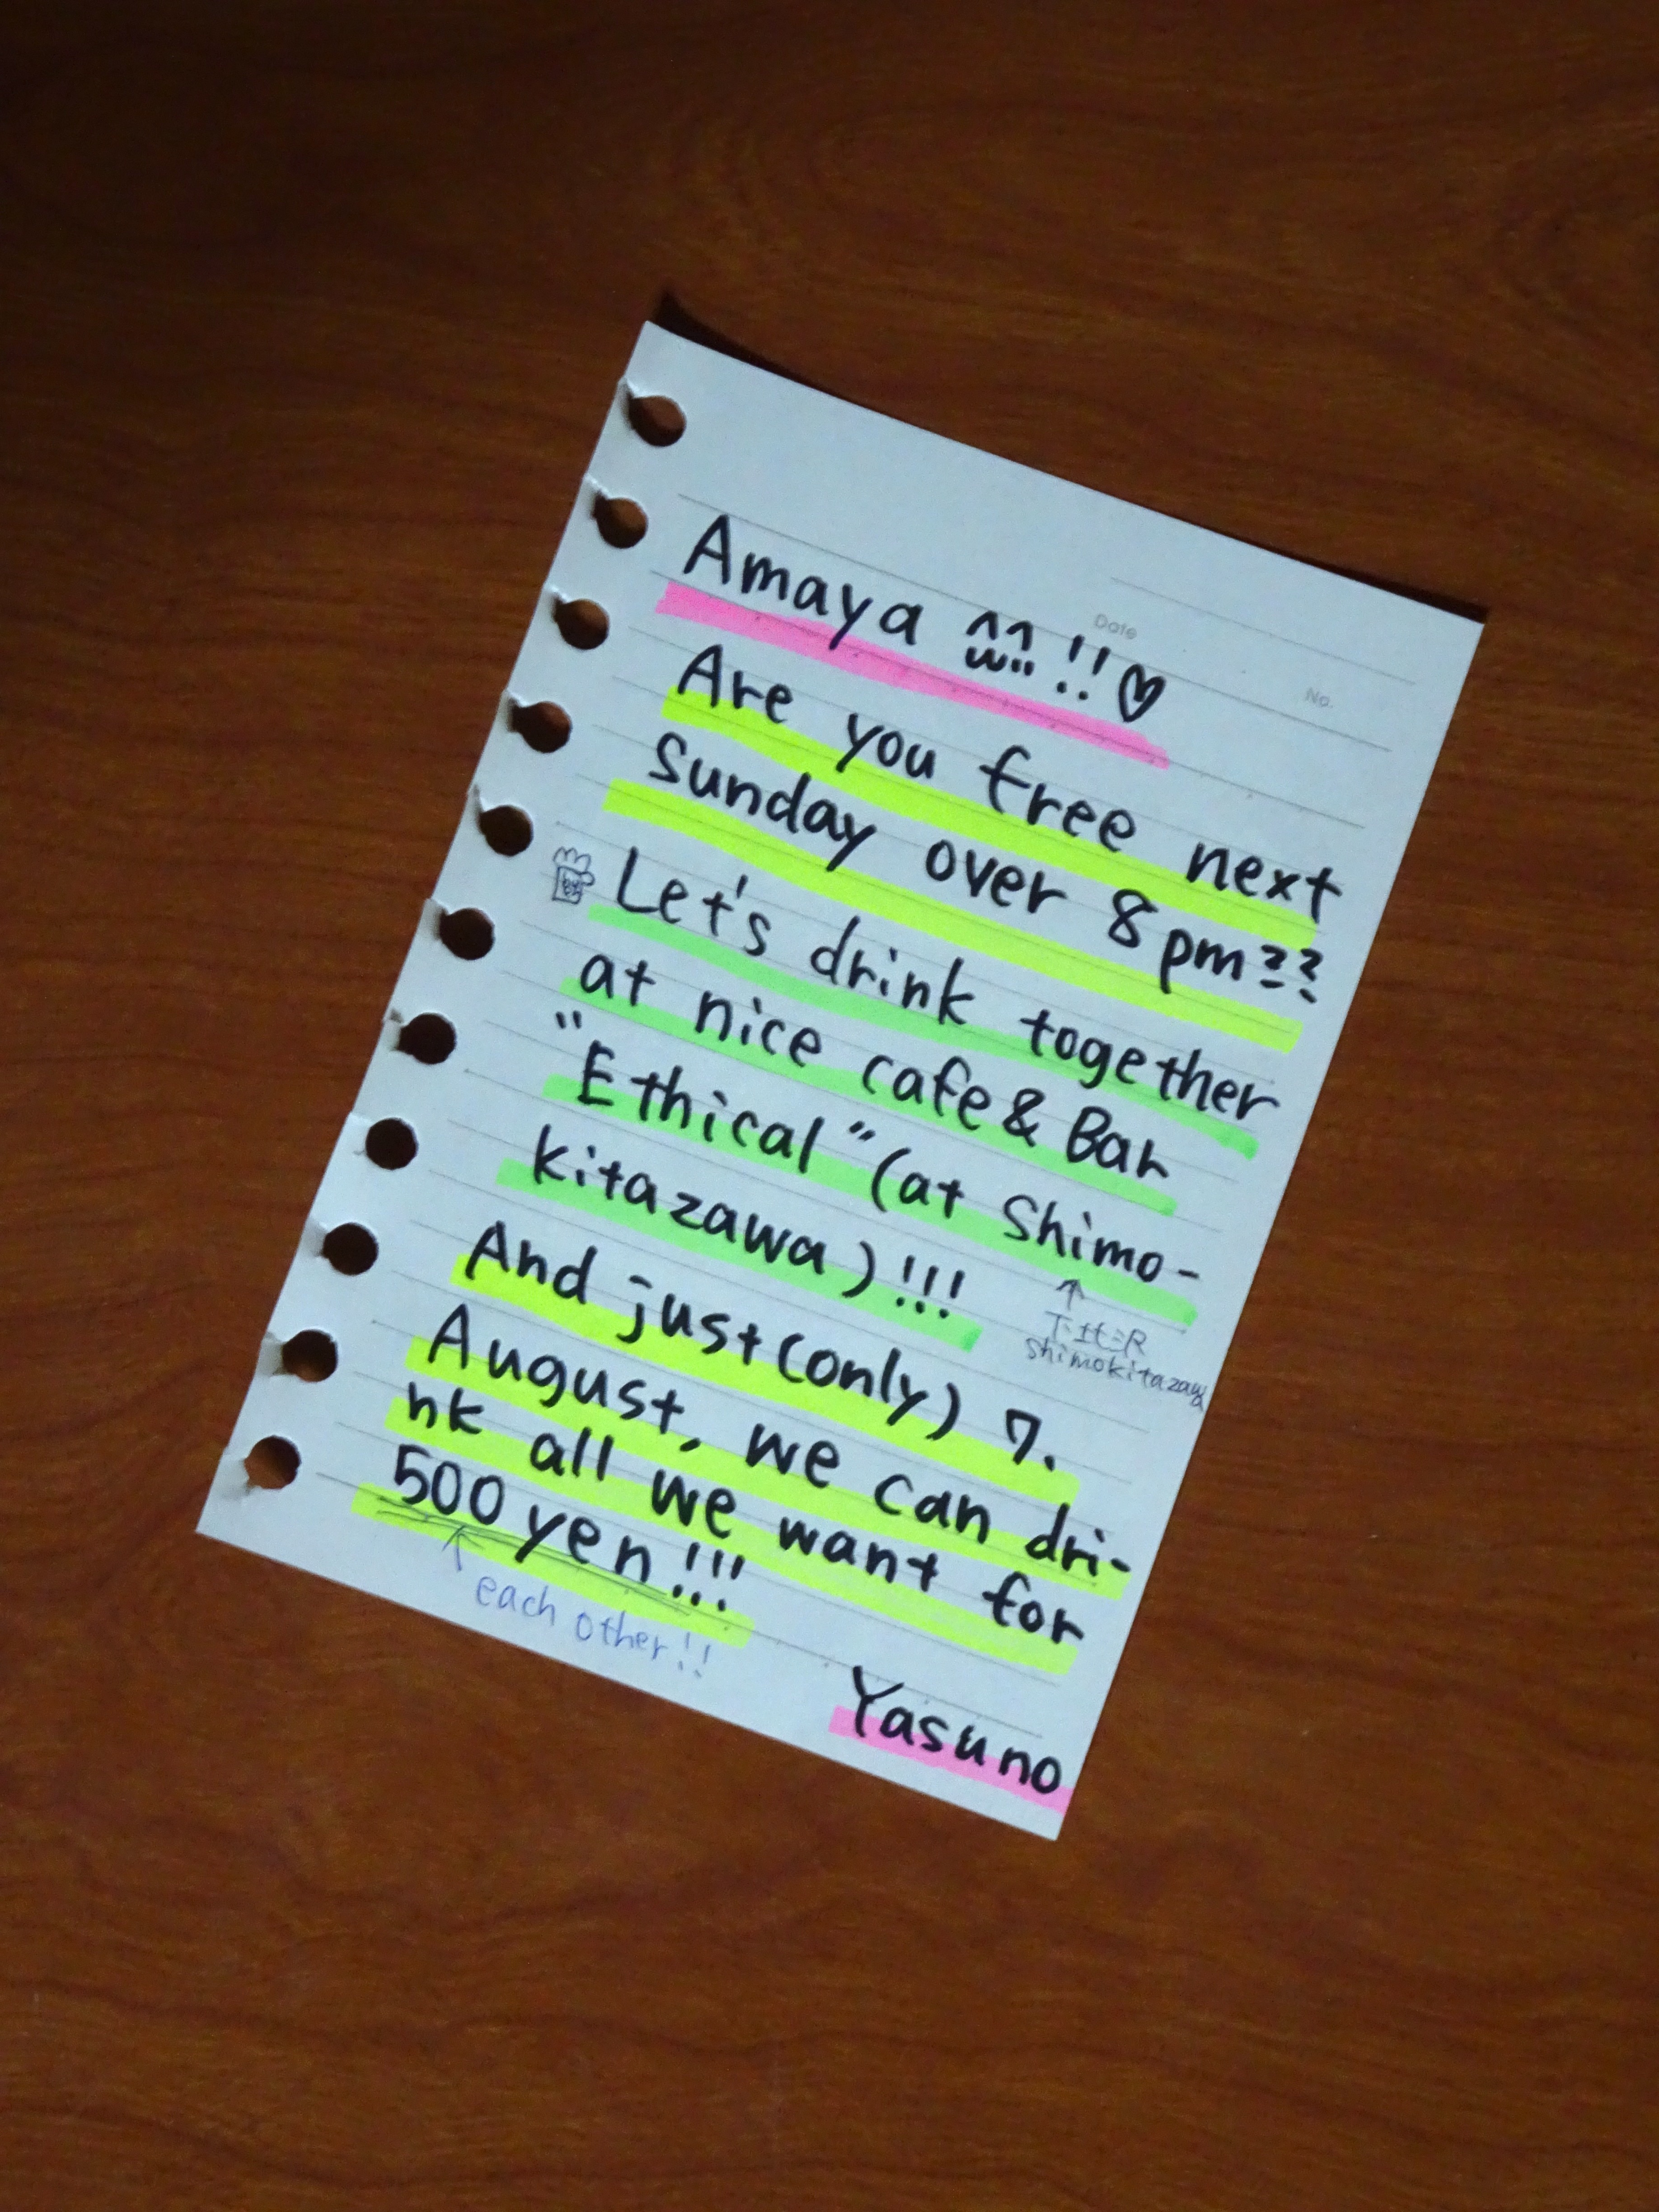 Amaya ^^ !! ♡
Date
No.
Are you free next
Sunday over 8pm??
Let's drink together
at nice cafe & Bar
"Ethical" (at Shimo-
kitazawa)!!!
↑
下北沢
Shimokitazawa
And just (only) 7.
August, we can dri-
nk all we want for
500 yen!!!
↑ each other!!
Yasuno